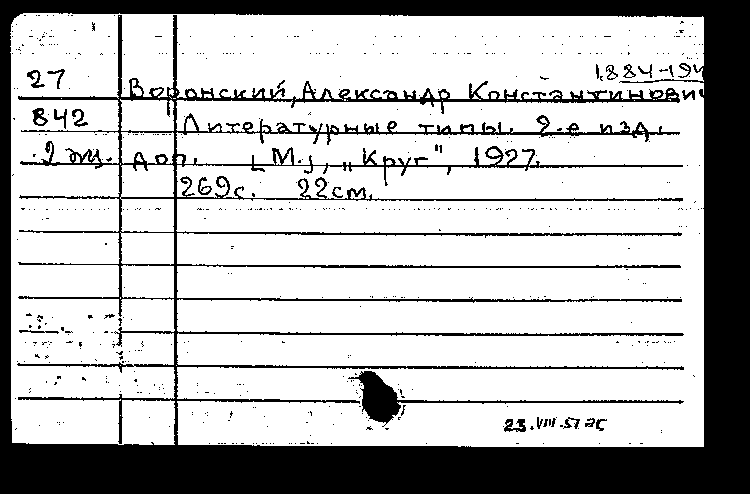 1884-194
27 Воронский, Александр Константинович
842 Литературные типы. 2-е изд.
2 экз. доп. [М.], „Круг", 1927.
269с. 22см.
23.VIII.57